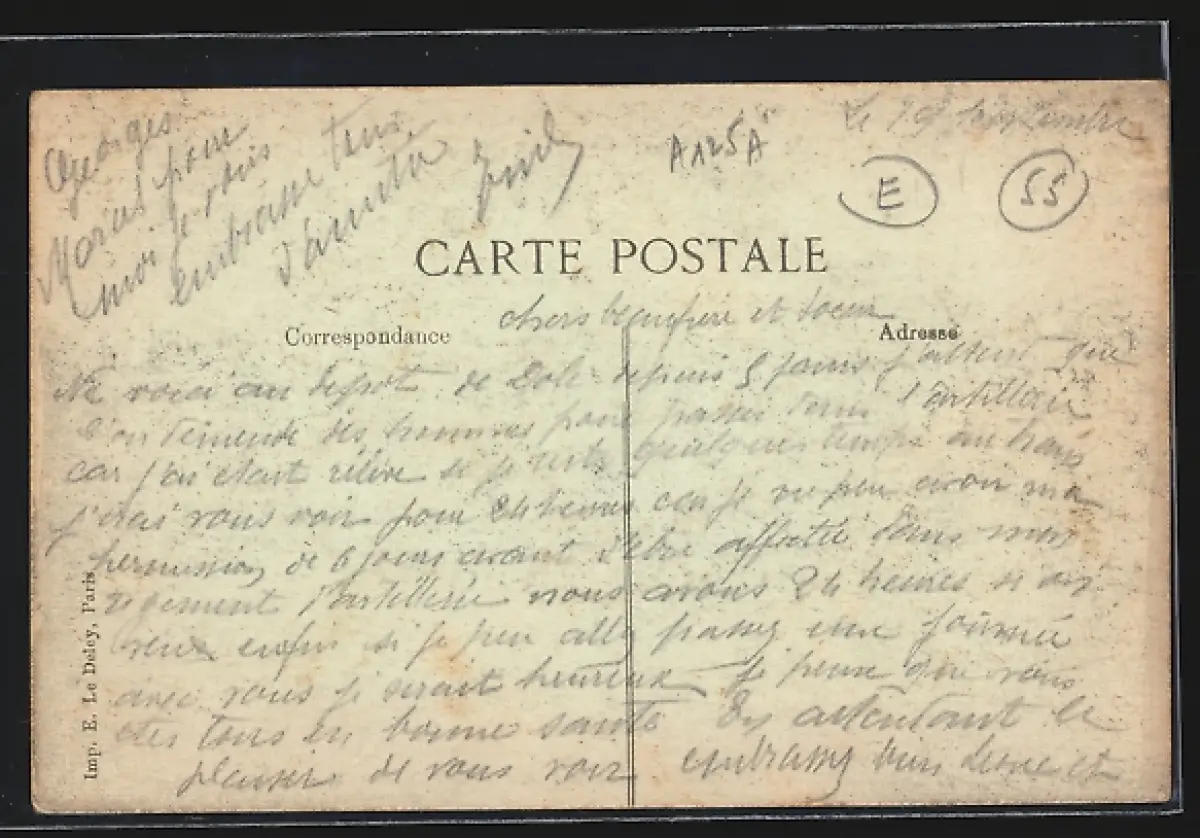 Le 19 Septembre
A125A
E
55
CARTE POSTALE
Correspondance
Adresse
chers beaufrere et soeur
Me voici au depot de Dole depuis 5 jours j'attend que
l'on demende des hommes pour passer dans l'artillerie
car j'ai etait relève si je reste quelques temps au
j'irai vous voir pour 24 heures car je ne peu avoir ma
permission de 6 jours avant d'etre affecté dans mon
regiment d'artillerie nous avons 24 heures si on
veux enfin si je peu aller passer une journée
avec vous je serait heureux je pense que vous
etes tous en bonne santé En attendant le
plaisir de vous voir embrassez bien et
Georges
Marius pour
moi je vous
embrasse tous
d'amitié
Imp. E. Le Deley, Paris